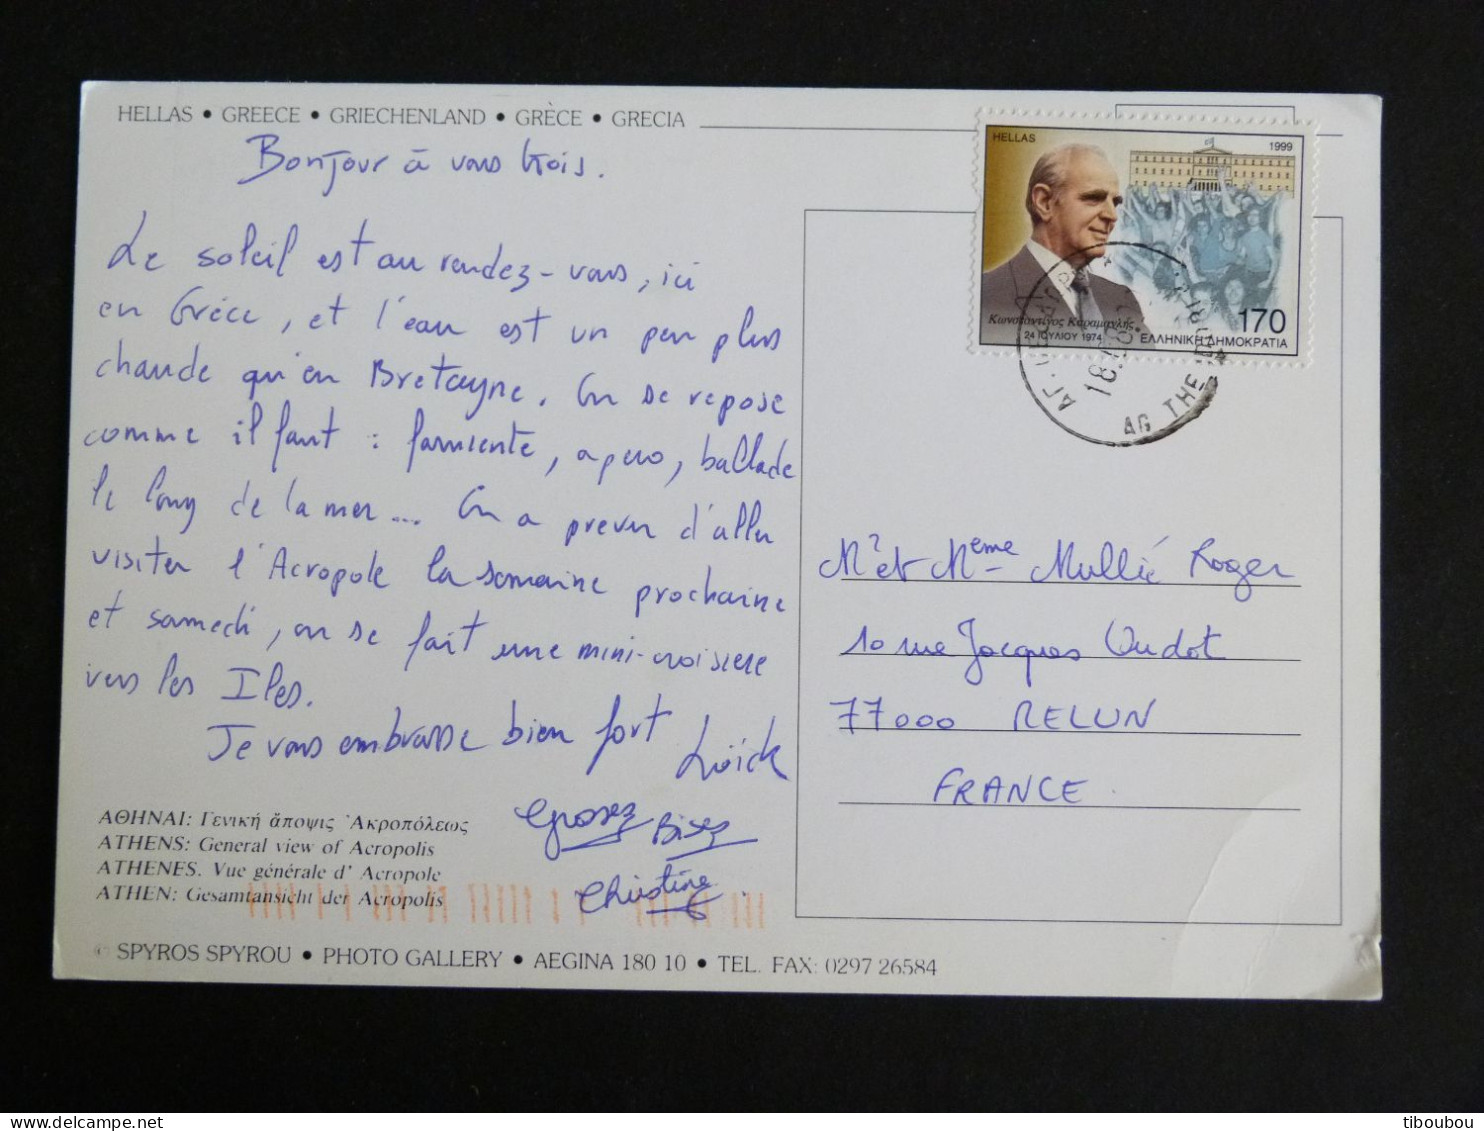 HELLAS • GREECE • GRIECHENLAND • GRÈCE • GRECIA
Bonjour à vous trois.
Le soleil est au rendez-vous, ici
en Grèce, et l'eau est un peu plus
chaude qu'en Bretagne. On se repose
comme il faut : farniente, apero, ballade
le long de la mer... On a prevu d'aller
visiter l'Acropole la semaine prochaine
et samedi, on se fait une mini-croisiere
vers les Iles.
Je vous embrasse bien fort
Loïck
Grosses Bises
Christine.
ΑΘΗΝΑΙ: Γενική ἄποψις Ἀκροπόλεως
ATHENS: General view of Acropolis
ATHENES. Vue générale d' Acropole
ATHEN: Gesamtansicht der Acropolis
SPYROS SPYROU • PHOTO GALLERY • AEGINA 180 10 • TEL. FAX: 0297 26584
HELLAS
1999
Κωνσταντίνος Καραμανλής
24 ΙΟΥΛΙΟΥ 1974
170
ΕΛΛΗΝΙΚΗ ΔΗΜΟΚΡΑΤΙΑ
AG THE
Mr et Meme Mullié Roger
10 rue Jacques Oudot
77000 MELUN
FRANCE
tiboubou